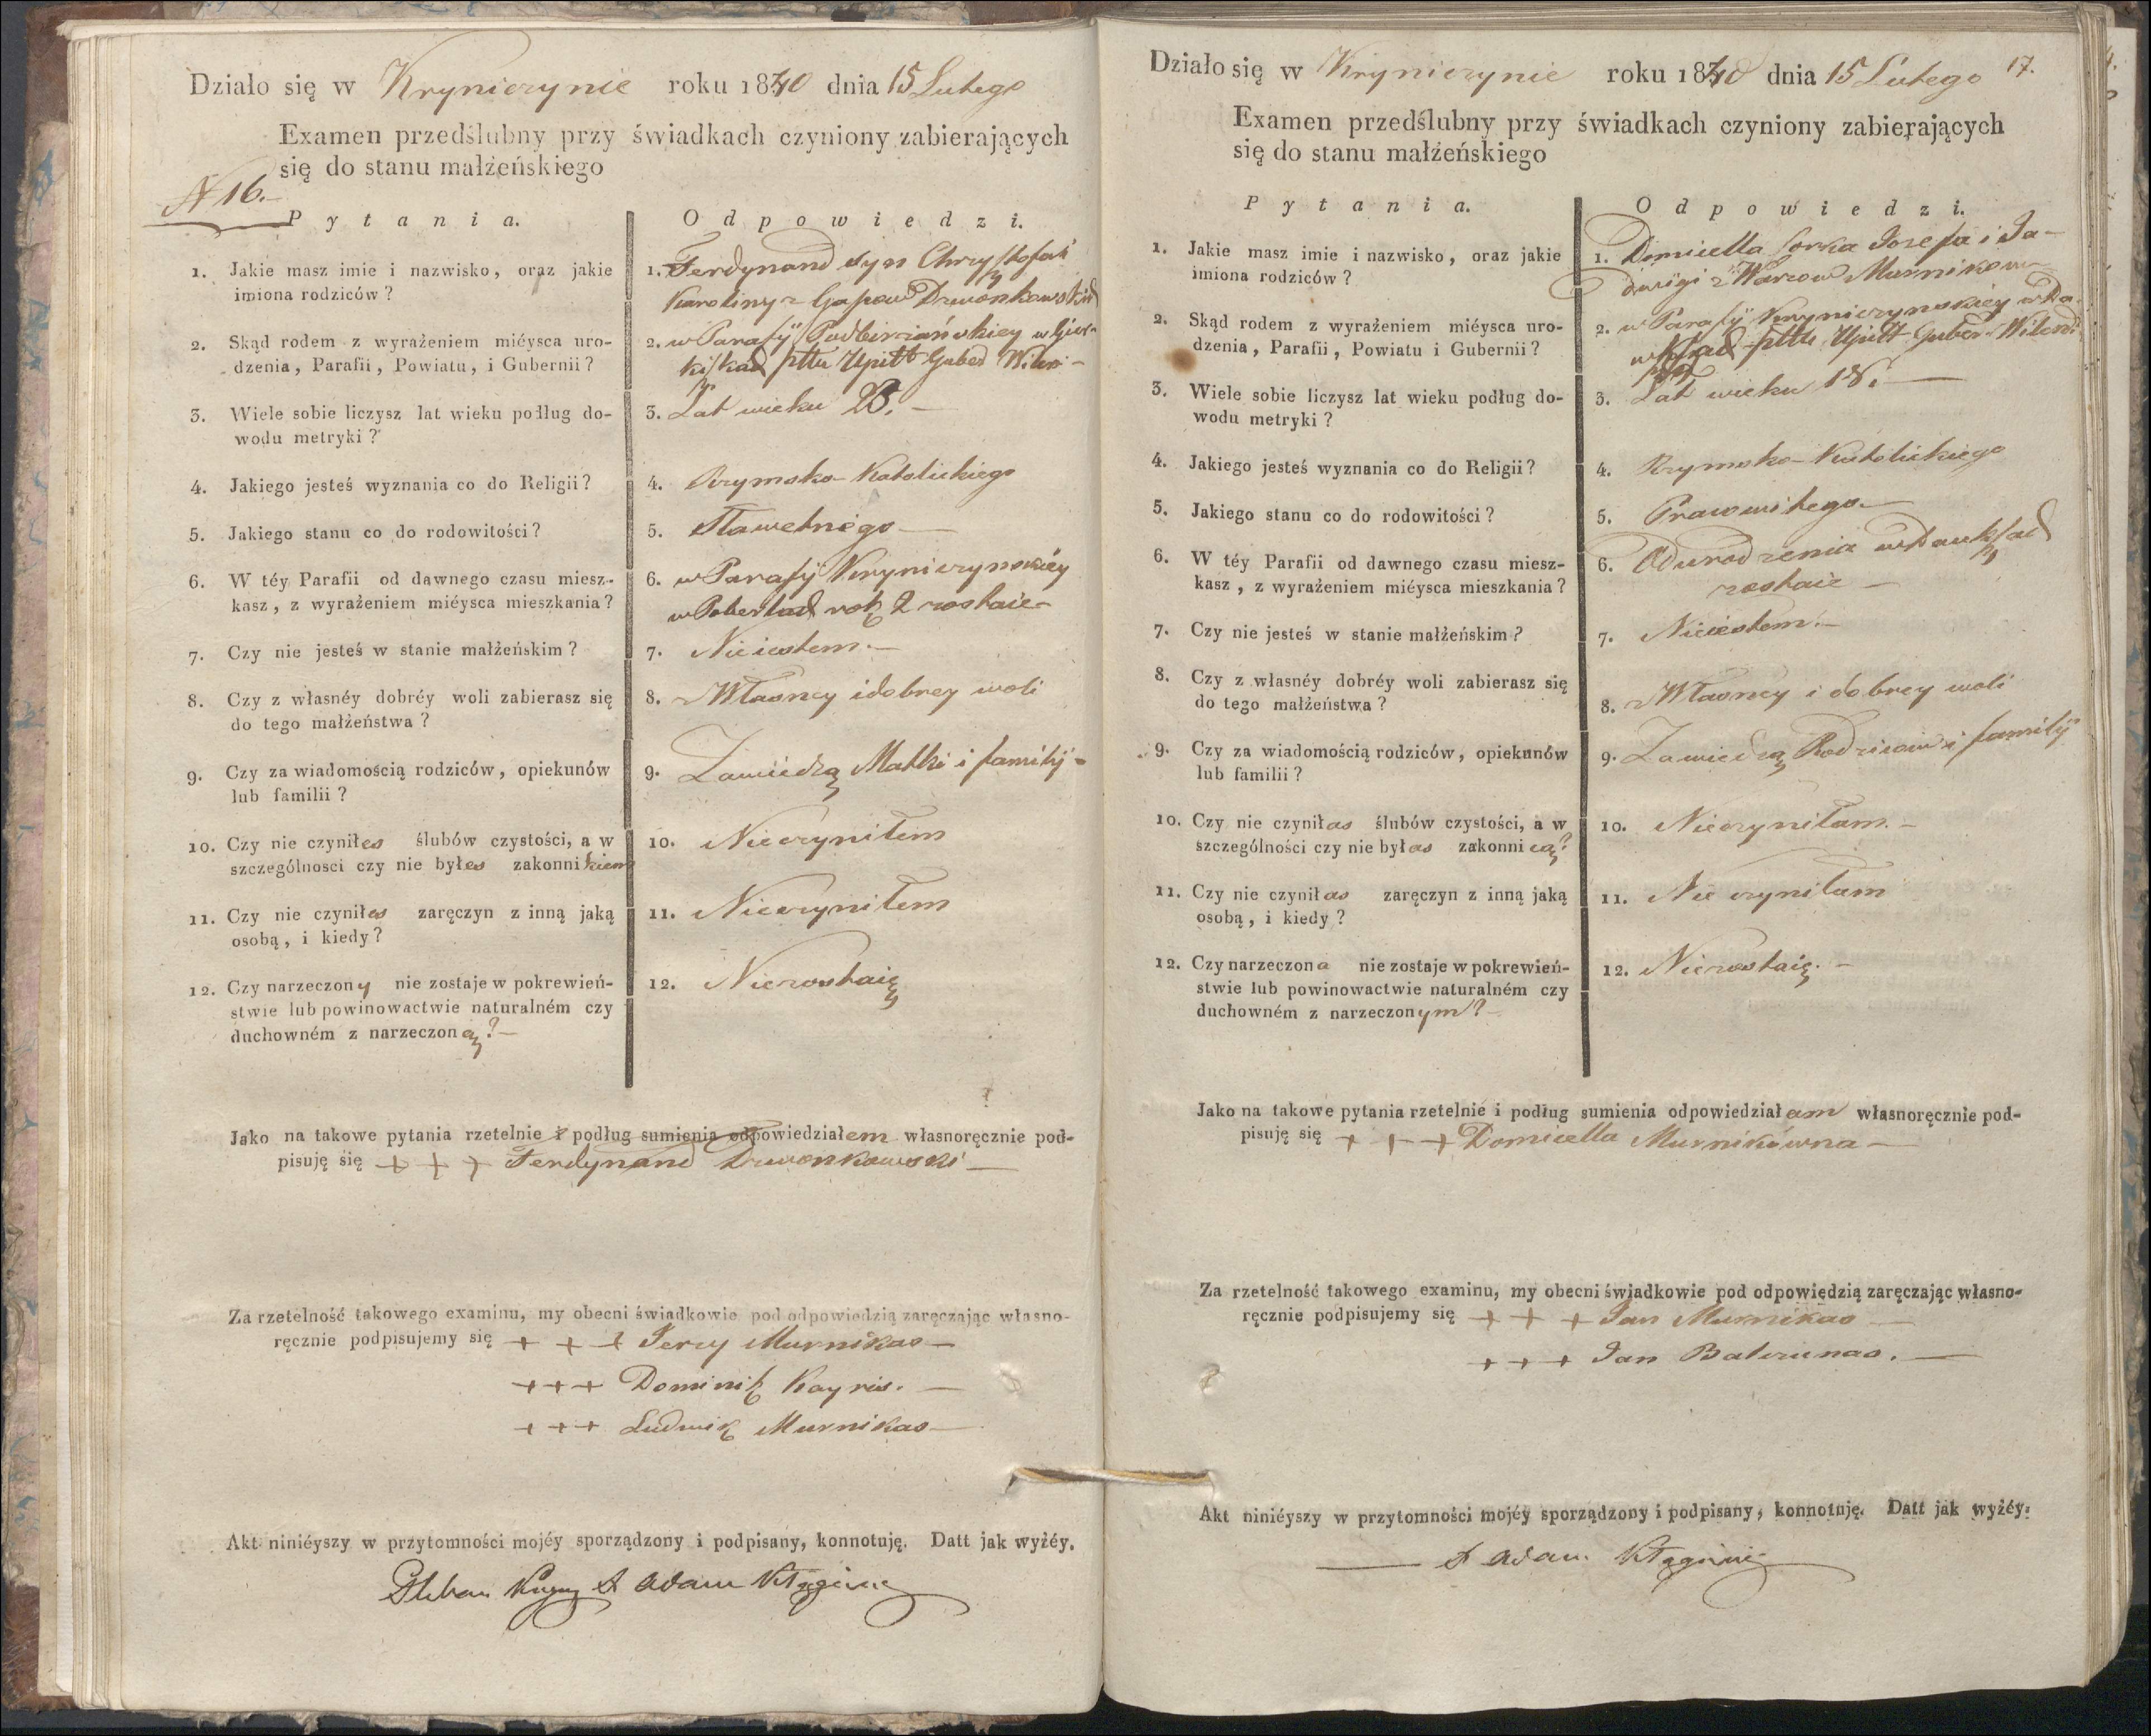 Działo się w Kryniczynie roku 1840 dnia 15 Lutego
Examen przedślubny przy świadkach czyniony zabierających
się do stanu małżeńskiego
N 16.
Pytania.
Odpowiedzi.
1. Jakie masz imie i nazwisko, oraz jakie
imiona rodziców?
1. Ferdynand syn Chrysztofa i
Karoliny z
2. Skąd rodem z wyrażeniem miéysca uro-
dzenia, Parafii, Powiatu, i Gubernii?
2. w Parafij Podbirżańskiey w
pttu Upitt Guber Wilen-
3. Wiele sobie liczysz lat wieku podług do-
wodu metryki?
3. Lat wieku
4. Jakiego jesteś wyznania co do Religii?
4. Rzymsko-Katolickiego
5. Jakiego stanu co do rodowitości?
5. Sławetnego
6. W téy Parafii od dawnego czasu miesz-
kasz, z wyrażeniem miéysca mieszkania?
6. w Parafij Kryniczynskiey
rok 2 zostaie
7. Czy nie jesteś w stanie małżeńskim?
7. Nieiestem.
8. Czy z własnéy dobréy woli zabierasz się
do tego małżeństwa?
8. z Własney i dobrey woli
9. Czy za wiadomością rodziców, opiekunów
lub familii?
9. Zawiedzą Matki i familij
10. Czy nie czyniłes ślubów czystości, a w
szczególnosci czy nie byłes zakonnikiem
10. Nieczyniłem
11. Czy nie czyniłes zaręczyn z inną jaką
osobą, i kiedy?
11. Nieczyniłem
12. Czy narzeczony nie zostaje w pokrewień-
stwie lub powinowactwie naturalném czy
duchowném z narzeczoną?
12. Niezostaię
Jako na takowe pytania rzetelnie i podług sumienia odpowiedziałem własnoręcznie pod-
pisuję się + + + Ferdynand Dzwonkowski
Za rzetelność takowego examinu, my obecni świadkowie pod odpowiedzią zaręczając własno-
ręcznie podpisujemy się + + + Jerzy Murnikas
+++ Dominik Kayris.
+++ Ludwik Murnikas
Akt niniéyszy w przytomności mojéy sporządzony i podpisany, konnotuję. Datt jak wyżéy.
Pleban X Adam
Działo się w Kryniczynie roku 1840 dnia 15 Lutego 17.
Examen przedślubny przy świadkach czyniony zabierających
się do stanu małżeńskiego
Pytania.
Odpowiedzi.
1. Jakie masz imie i nazwisko, oraz jakie
imiona rodziców?
1. Domicella Corka Jozefa i Ja-
dwigi z
2. Skąd rodem z wyrażeniem miéysca uro-
dzenia, Parafii, Powiatu i Gubernii?
2. w Parafij Kryniczynskiey
pttu Upitt Guber Wilens
3. Wiele sobie liczysz lat wieku podług do-
wodu metryki?
3. Lat wieku 18.
4. Jakiego jesteś wyznania co do Religii?
4. Rzymsko-Katolickiego
5. Jakiego stanu co do rodowitości?
5. Pracowitego
6. W téy Parafii od dawnego czasu miesz-
kasz, z wyrażeniem miéysca mieszkania?
6. Od urodzenia
zostaie
7. Czy nie jesteś w stanie małżeńskim?
7. Nieiestem.
8. Czy z własnéy dobréy woli zabierasz się
do tego małżeństwa?
8. z Własney i dobrey woli
9. Czy za wiadomością rodziców, opiekunów
lub familii?
9. Zawiedzą Rodzicow i familij
10. Czy nie czyniłas ślubów czystości, a w
szczególności czy nie byłas zakonnicą?
10. Nieczyniłam.
11. Czy nie czyniłas zaręczyn z inną jaką
osobą, i kiedy?
11. Nie czyniłam
12. Czy narzeczona nie zostaje w pokrewień-
stwie lub powinowactwie naturalném czy
duchowném z narzeczonym?
12. Niezostaię.
Jako na takowe pytania rzetelnie i podług sumienia odpowiedziałam własnoręcznie pod-
pisuję się + + + Domicella Murnikówna
Za rzetelność takowego examinu, my obecni świadkowie pod odpowiędzią zaręczając własno-
ręcznie podpisujemy się + + + Jan Murnikas
+ + + Jan Balczunas.
Akt niniéyszy w przytomności mojéy sporządzony i podpisany, konnotuję. Datt jak wyżéy.
X Adam